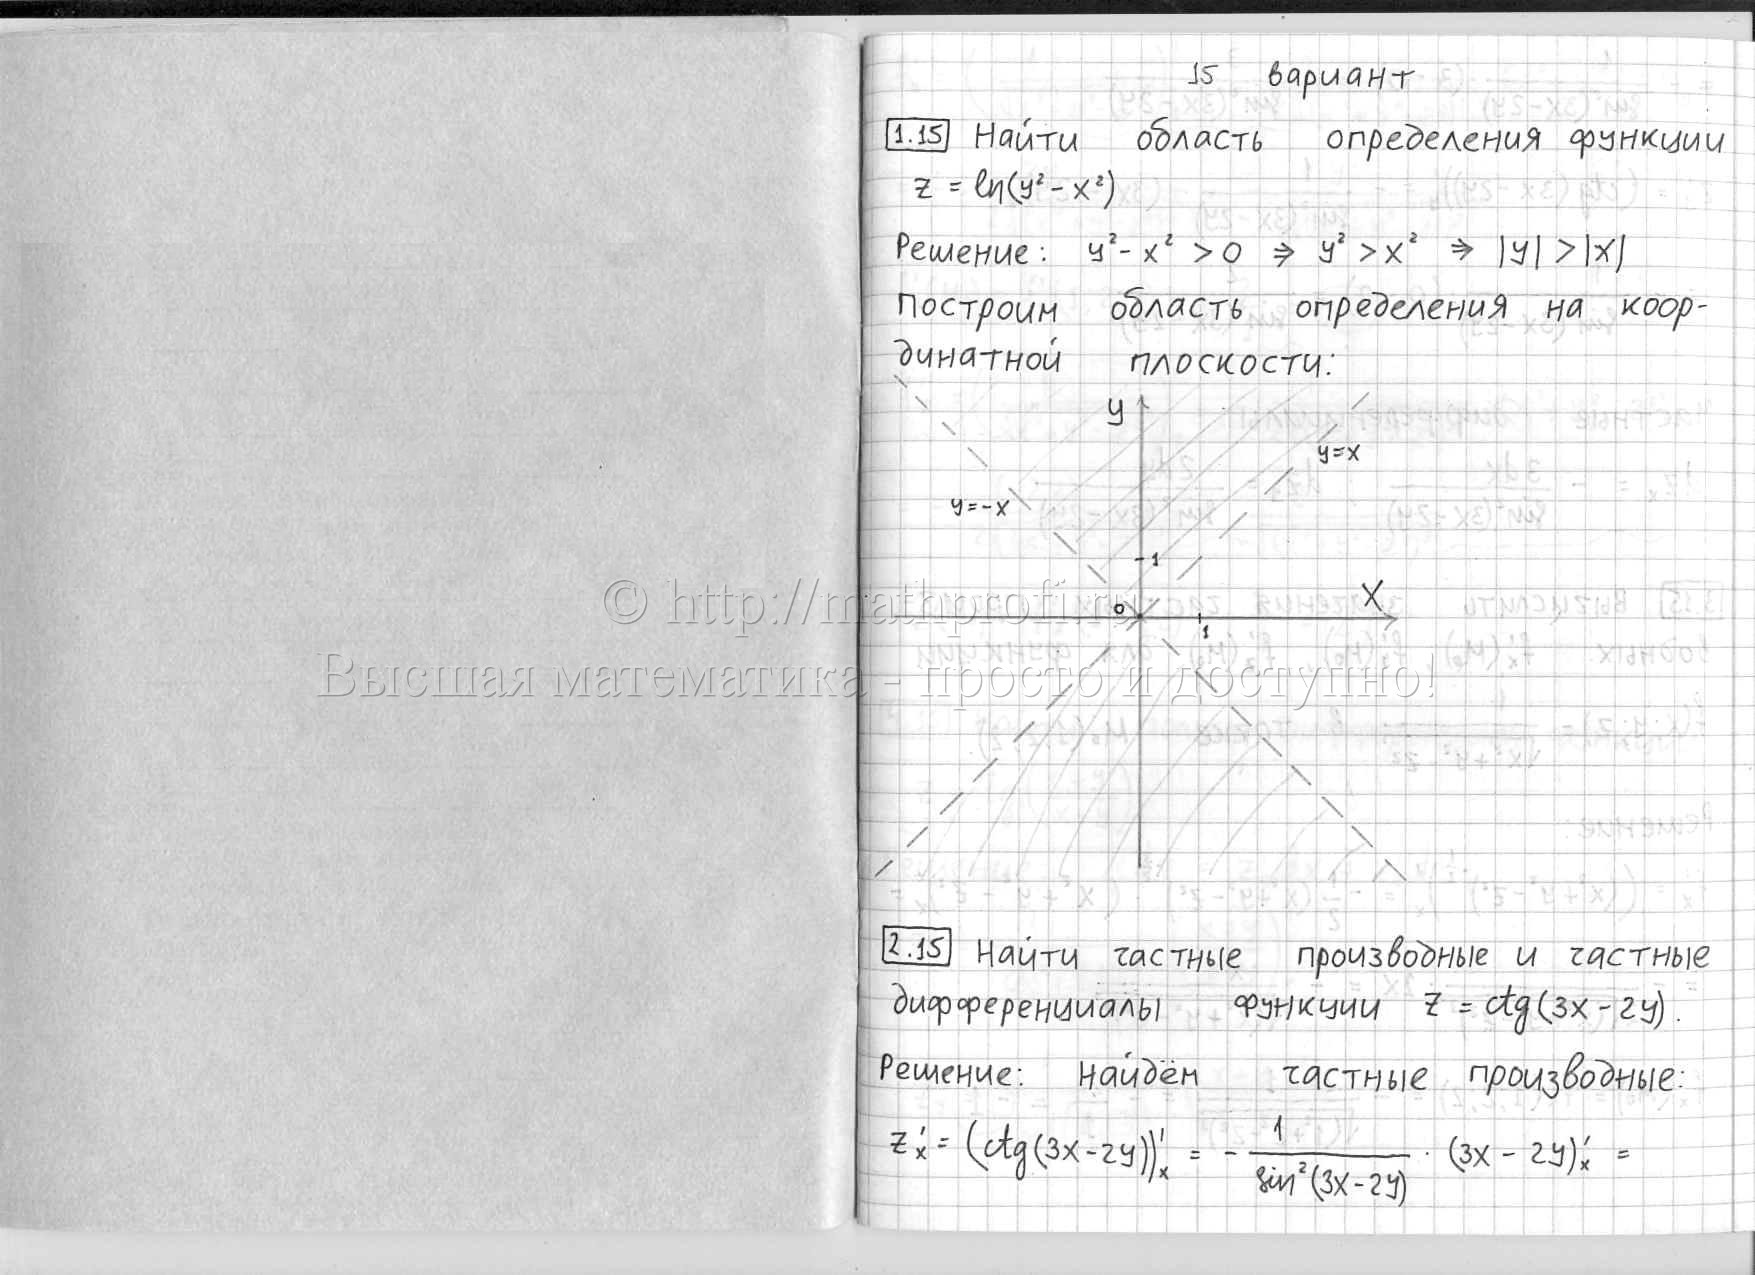 15 вариант
1.15 Найти область определения функции
z = ln(y² - x²)
Решение: y² - x² > 0 ⇒ y² > x² ⇒ |y| > |x|
Построим область определения на коор-
динатной плоскости:
y
y=x
y=-x
1
© http://mathprofi.ru
X
0
1
Высшая математика - просто и доступно!
2.15 Найти частные производные и частные
дифференциалы функции z = ctg(3x - 2y).
Решение: найдём частные производные:
z'ₓ = (ctg(3x - 2y))'ₓ = - 1/sin²(3x - 2y) · (3x - 2y)'ₓ =